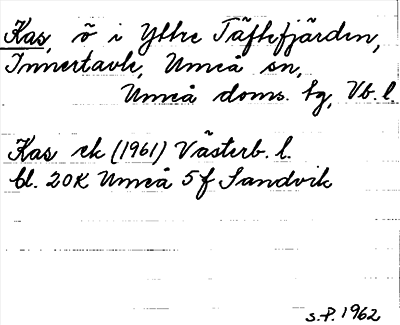 Kas, ö i Yttre Täftefjärden,
Innertavle, Umeå sn,
Umeå doms. tg, Vb. l.
Kas ek (1961) Västerb. l.
bl. 20K Umeå 5f Sandvik
S.P. 1962